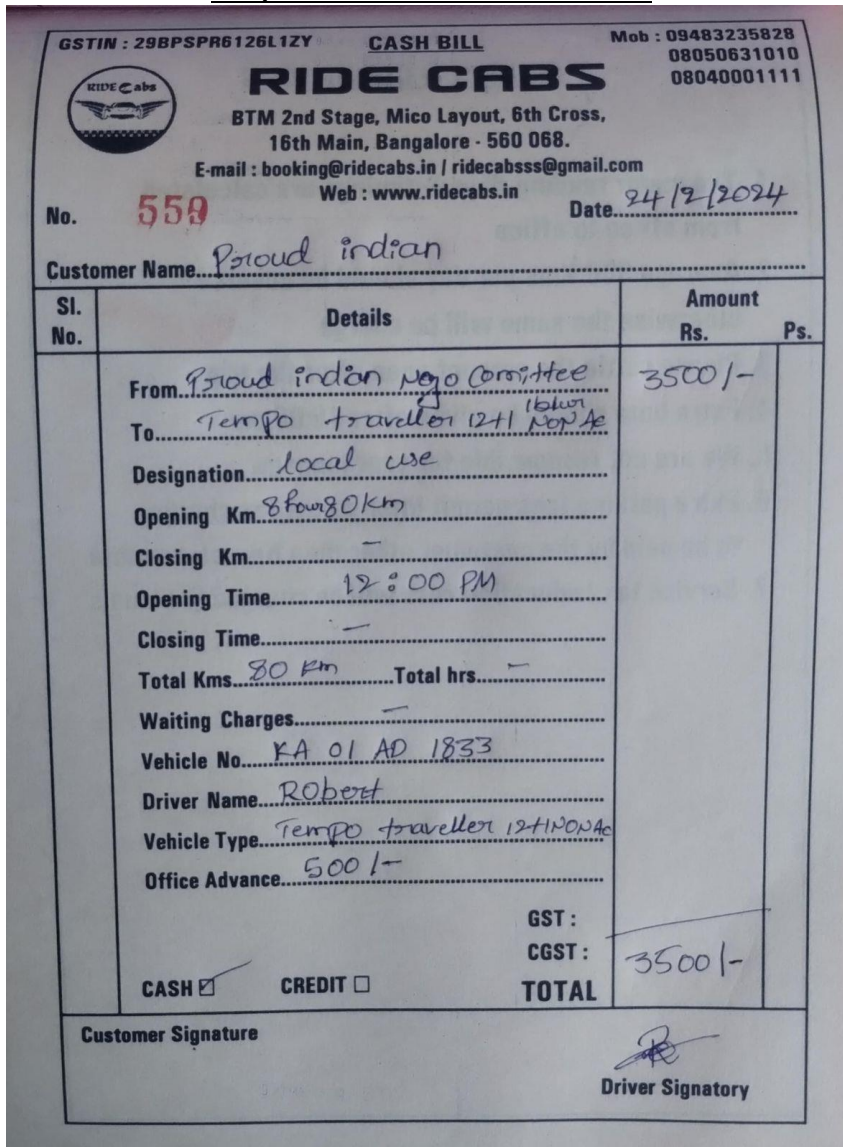 GSTIN : 29BPSPR6126L1ZY CASH BILL Mob : 09483235828
08050631010
08040001111
RIDE Cabs
RIDE CABS
BTM 2nd Stage, Mico Layout, 6th Cross,
16th Main, Bangalore - 560 068.
E-mail : booking@ridecabs.in / ridecabsss@gmail.com
Web : www.ridecabs.in
No. 559 Date 24/2/2024
Customer Name Proud indian
Sl. No. Details Amount Rs. Ps.
From Proud indian Ngo Comittee 3500/-
To Tempo traveller 12+1 NON AC
Designation local use
Opening Km 8 hour 80 km
Closing Km –
Opening Time 12:00 PM
Closing Time –
Total Kms 80 km Total hrs –
Waiting Charges –
Vehicle No KA 01 AD 1833
Driver Name Robert
Vehicle Type Tempo traveller 12+1 NON AC
Office Advance 500/-
GST :
CGST :
CASH ☑ CREDIT ☐ TOTAL 3500/-
Customer Signature
Driver Signatory